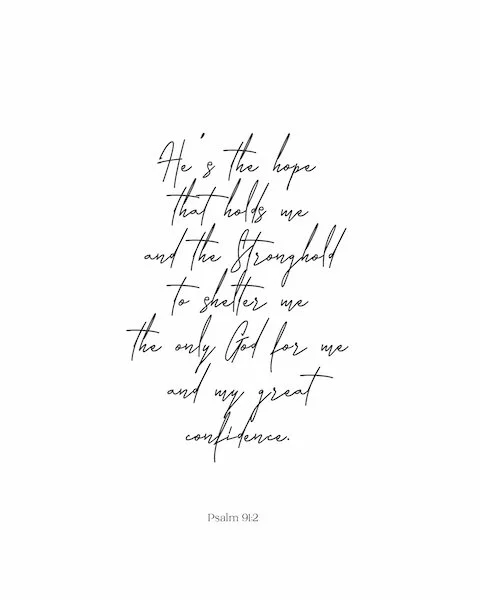 He's the hope
that holds me
and the Stronghold
to shelter me
the only God for me
and my great
confidence.
Psalm 91:2